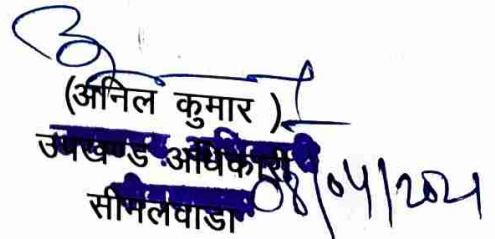 (अनिल कुमार )
उपखण्ड अधिकारी
सीमलवाडा 08/04/2021